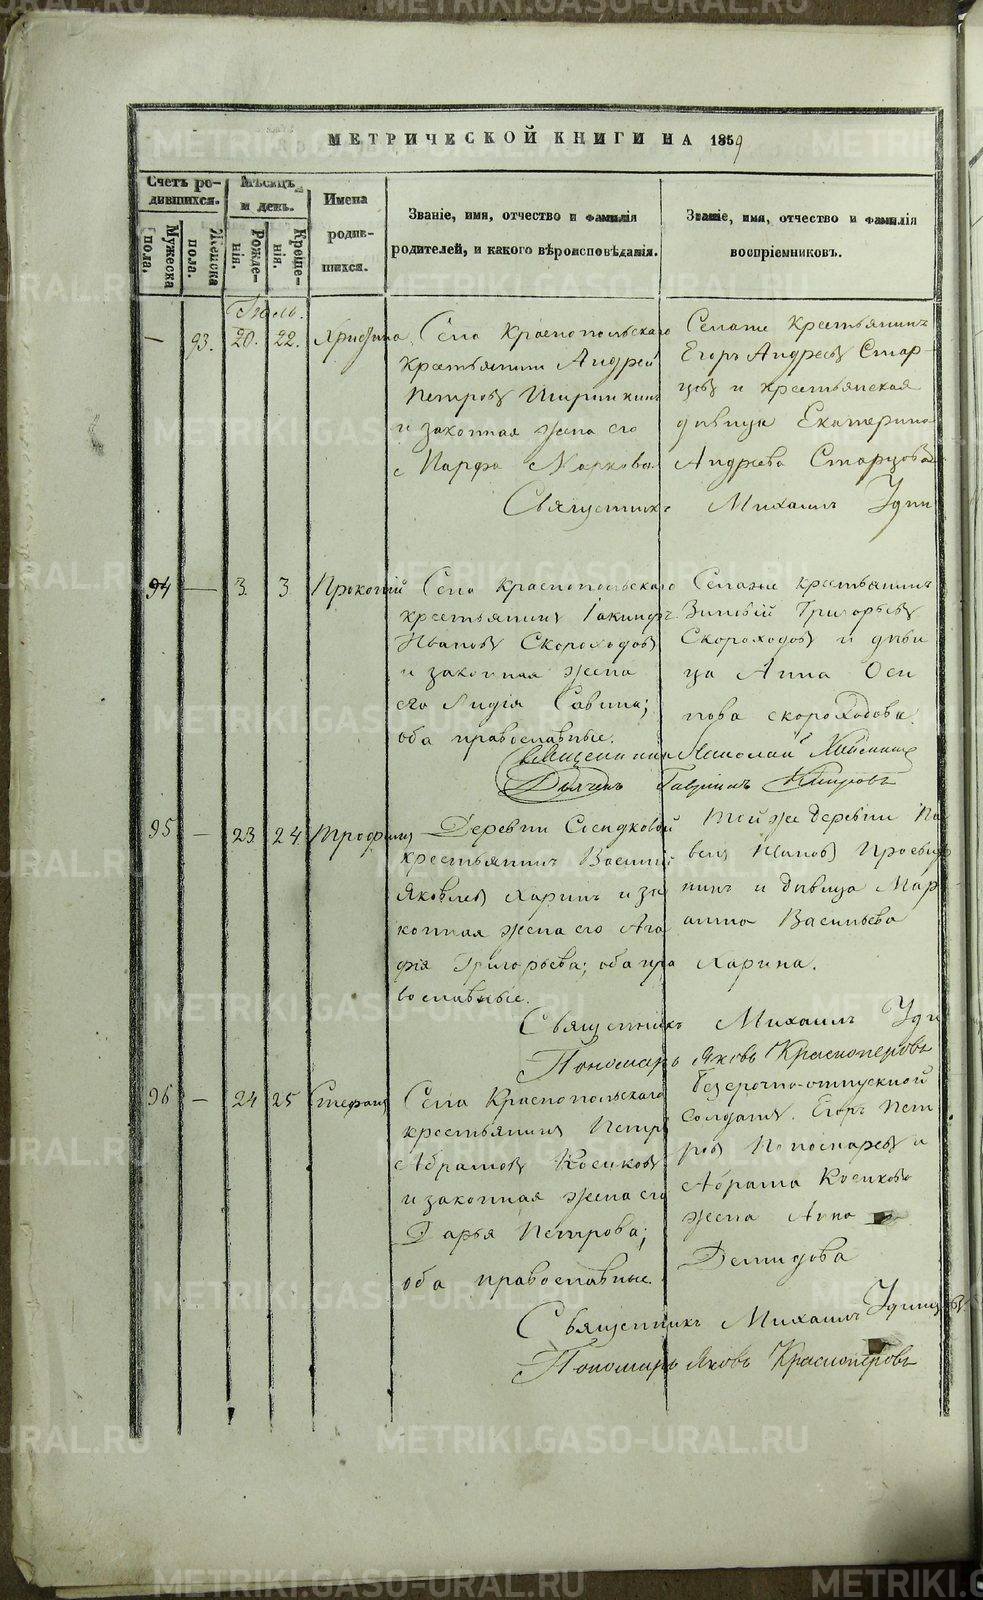 МЕТРИЧЕСКОЙ КНИГИ НА 1859
Счетъ родившихся.
Мужеска пола.
Женска пола.
Мѣсяцъ и день.
Рожденія.
Крещенія.
Имена родившихся.
Званіе, имя, отчество и фамилія родителей, и какого вѣроисповѣданія.
Званіе, имя, отчество и фамилія воспріемниковъ.
Іюль.
— 93. 20. 22.
Села Краснопольскаго
крестьянинъ Андрей
Петровъ
и законная жена его
Марфа Маркова
Селаже крестьянинъ
Егоръ Андреевъ Стар-
цовъ и крестьянская
дѣвица Екатерина
Андреева Старцова
Священникъ Михаилъ Удин
94 — 3 3 Прокопій
Села Краснопольскаго
крестьянинъ Іакинфъ
Ивановъ Скороходовъ
и законная жена
его Лидія Савина;
оба православные.
Селаже крестьянинъ
Зиновій Григорьевъ
Скороходовъ и дѣви
ца Анна Оси
пова Скороходова.
Священникъ Николай
Дьячекъ Гавріилъ
95 — 23 24 Трофимъ
Деревни
крестьянинъ Василій
Яковлевъ Ларинъ и за
конная жена его Ага
фія Григорьева; оба пра
вославные.
Тойже деревни Па
велъ Ивановъ
нинъ и дѣвица Мар
Васильева
Ларина.
Священникъ Михаилъ Удин
Пономарь Яковъ Красноперовъ
96 — 24 25 Стефанъ
Села Краснопольскаго
крестьянинъ Петръ
Абрамовъ Косиковъ
и законная жена его
Дарья Петрова;
оба православные.
безсрочно-отпускной
солдатъ Егоръ Пет
ровъ Пономаревъ и
Абрама Косикова
жена Анна
Демидова
Священникъ Михаилъ Удинцевъ
Пономарь Яковъ Красноперовъ
METRIKI.GASO-URAL.RU